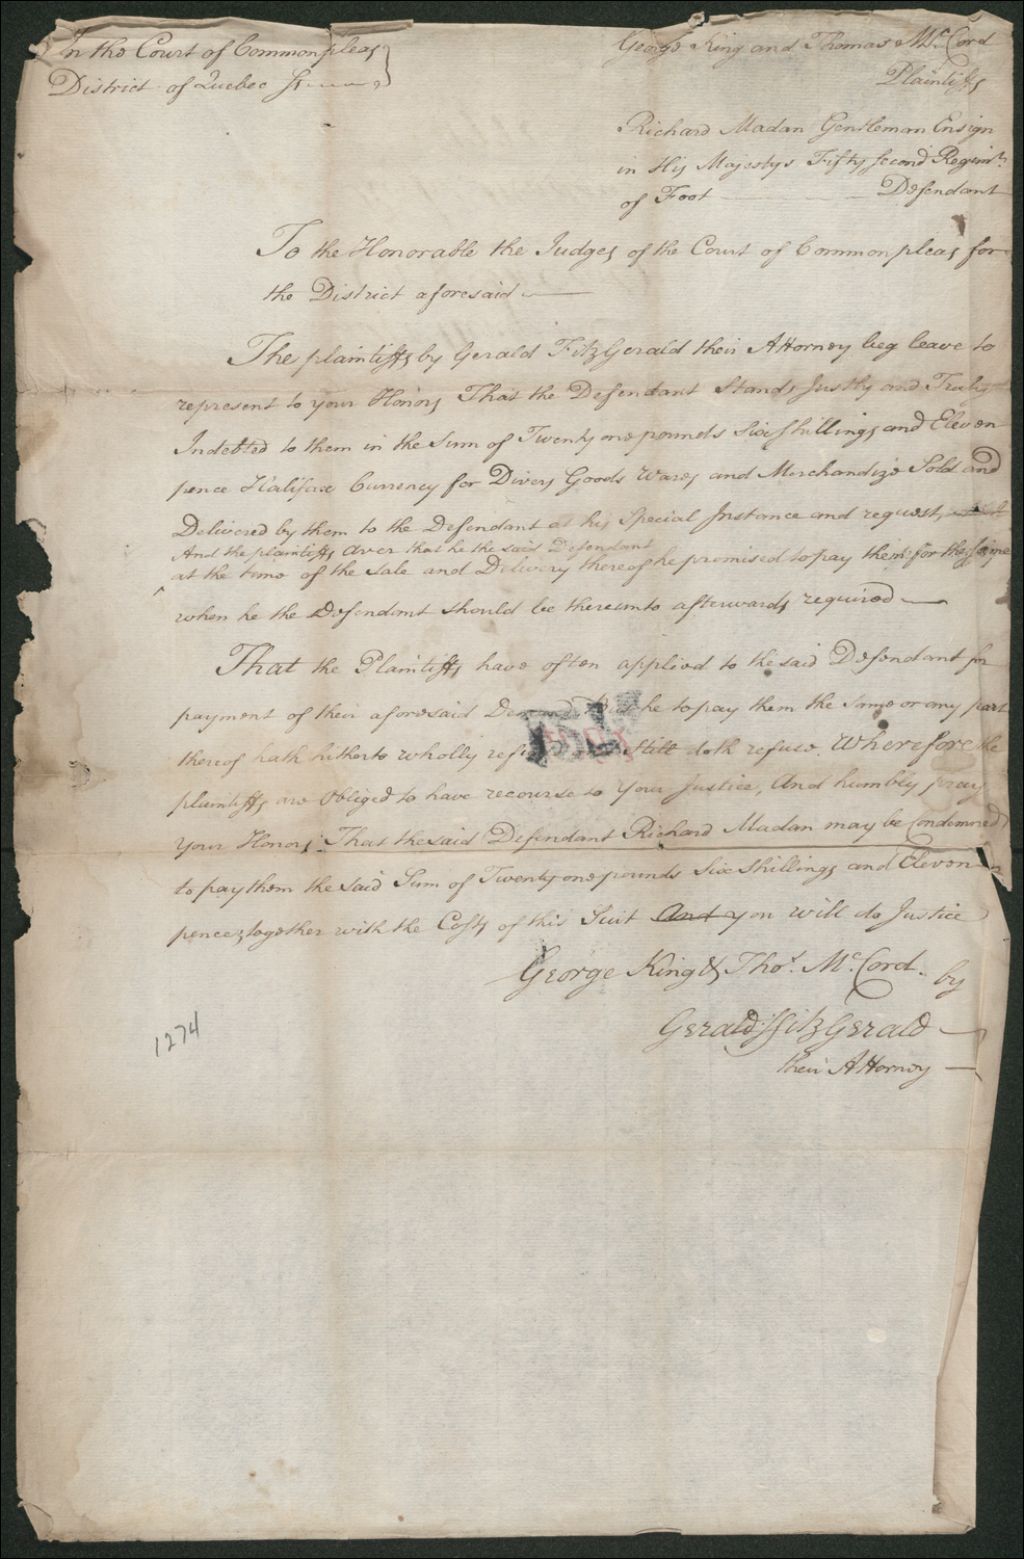 In the Court of Common pleas
District of Quebec Ss
George King and Thomas McCord
Plaintiffs
Richard Madan Gentleman Ensign
in His Majestys Fifty second Regimt.
of Foot Defendant
To the Honorable the Judges of the Court of Common pleas for
the District aforesaid
The plaintiffs by Gerald FitzGerald their Attorney beg leave to
represent to your Honors That the Defendant Stands Justly and Truly
Indebted to them in the Sum of Twenty one pounds Six shillings and Eleven
pence Halifax Currency for Divers Goods Wares and Merchandize Sold and
Delivered by them to the Defendant at his Special Instance and request,
And the plaintiffs aver that he the said Defendant
at the time of the sale and Delivery thereof he promised to pay them for the same
when he the Defendant should be thereunto afterwards required
That the Plaintiffs have often applied to the said Defendant for
payment of their aforesaid he to pay them the same or any part
thereof hath hitherto wholly still doth refuse. Wherefore the
plaintiffs are Obliged to have recourse to your Justice, And humbly pray
your Honors That the said Defendant Richard Madan may be Condemned
to pay them the said Sum of Twenty one pounds Six shillings and Eleven
pence, together with the Costs of this Suit And you will do Justice
George King & Thos. McCord. by
Gerald FitzGerald
their Attorney
1274